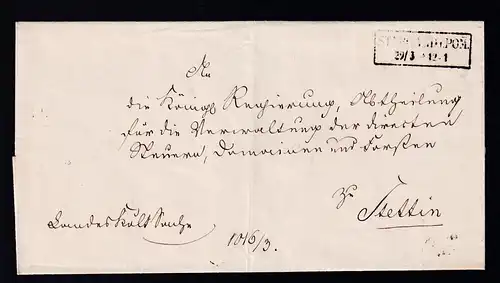 29/3 * 12-1
An
die Königl Regierung, Abtheilung
für die Verwaltung der directen
Steuern, Domainen und Forsten
zu
Stettin
Landes Kult Sache
1016/3.